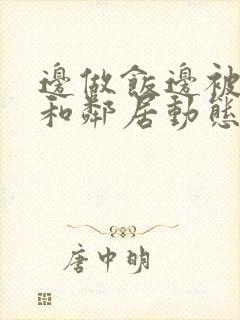 邊做飯邊被
和鄰居動態
唐中明